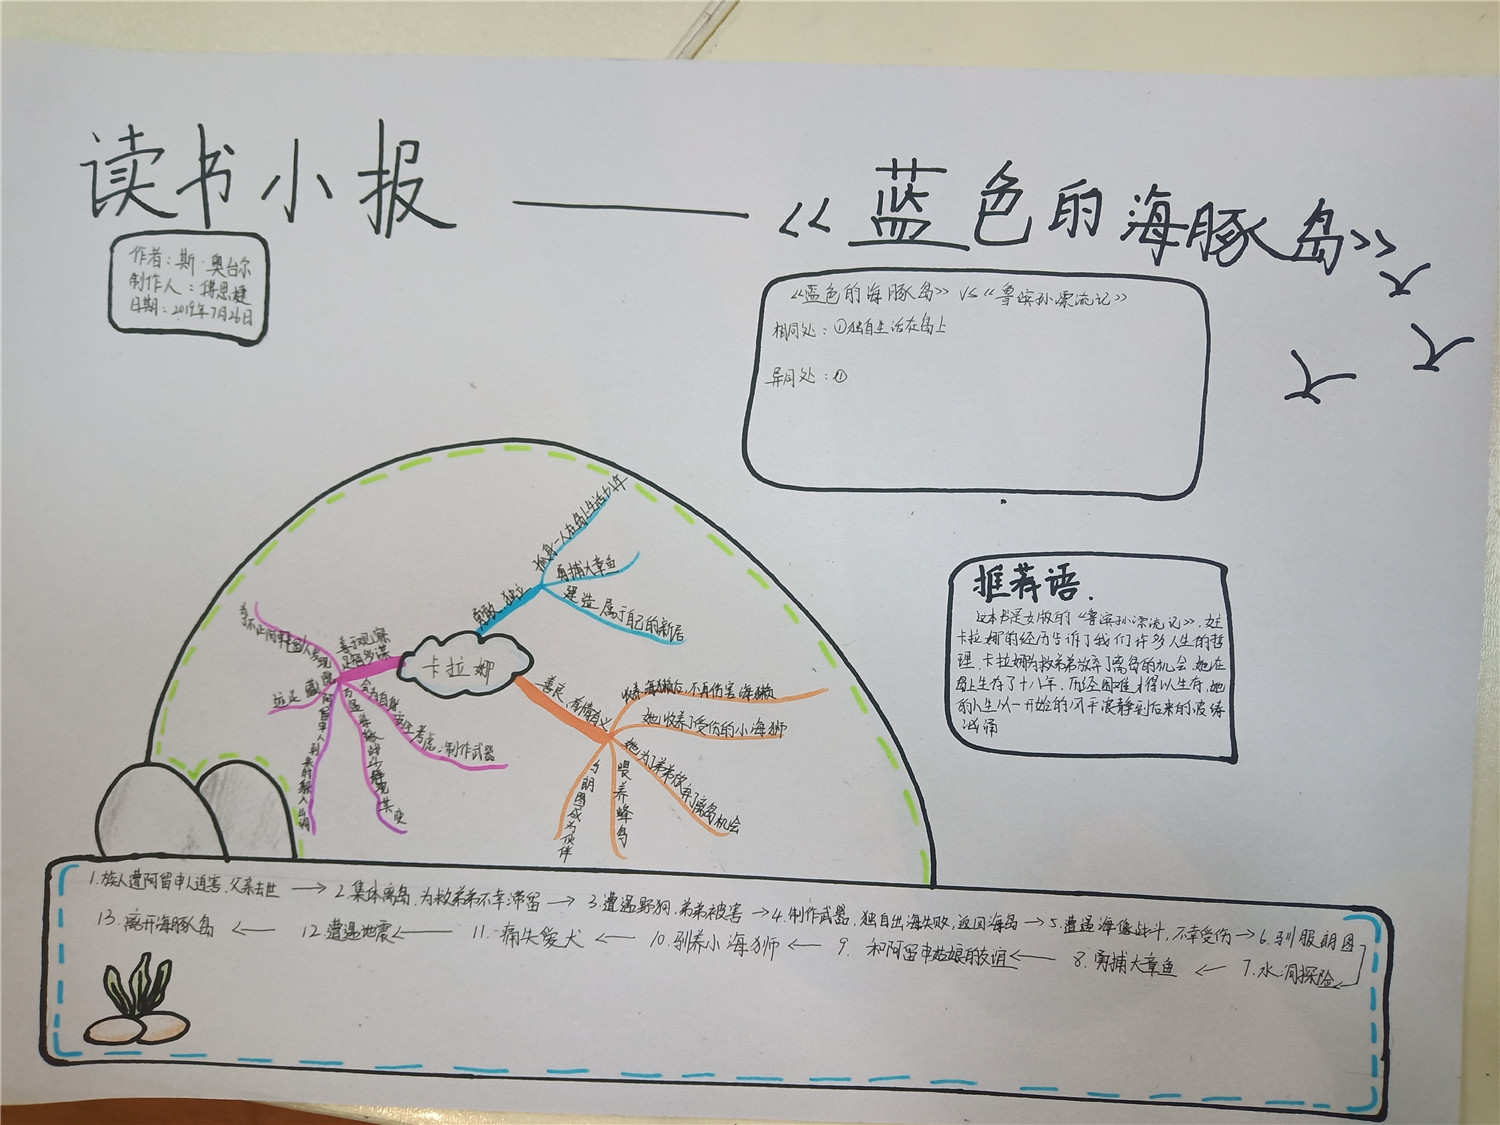 读书小报 —— 《蓝色的海豚岛》
作者：斯·奥台尔
制作人：傅思婕
日期：2019年7月26日
《蓝色的海豚岛》 VS 《鲁滨孙漂流记》
相同处：①独自生活在岛上
异同处：①
推荐语.
这本书是女版的《鲁滨孙漂流记》，女主
卡拉娜的经历告诉了我们许多人生的哲
理，卡拉娜为救弟弟放弃了离岛的机会，她在
岛上生存了十八年，历经困难才得以生存，她
的人生从一开始的风平浪静到后来的波涛
汹涌
卡拉娜
勇敢、独立
孤身一人在岛上生活18年
勇捕大章鱼
建造属于自己的新居
善良、有情有义
收养海獭后，不再伤害海獭
她收养了受伤的小海狮
她为了弟弟放弃了离岛机会
喂养蜂鸟
与朗图成为伙伴
善于观察
足智多谋
制作武器
1.族人遭阿留申人迫害，父亲去世 → 2.集体离岛，为救弟弟不幸滞留 → 3.遭遇野狗，弟弟被害 → 4.制作武器，独自出海失败，返回海岛 → 5.遭遇海象战斗，不幸受伤 → 6.驯服朗图
13.离开海豚岛 ← 12.遭遇地震 ← 11.痛失爱犬 ← 10.驯养小海狮 ← 9.和阿留申姑娘的友谊 ← 8.勇捕大章鱼 ← 7.水洞探险